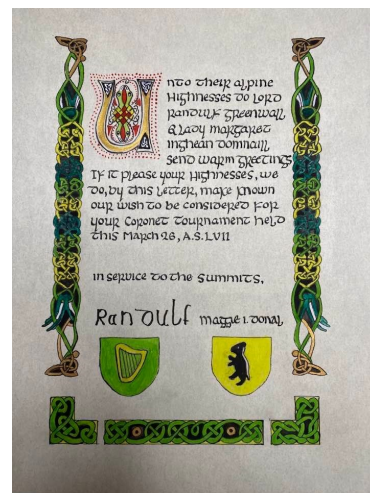 Unto their alpine
Highnesses do Lord
Randulf Greenwall
& Lady Margaret
inghean Domnaill
send warm greetings
If it please your Highnesses, we
do, by this letter, make known
our wish to be considered for
your Coronet Tournament held
this March 26, A.S. LVII
in service to the Summits,
Randulf Maggie I. Donal